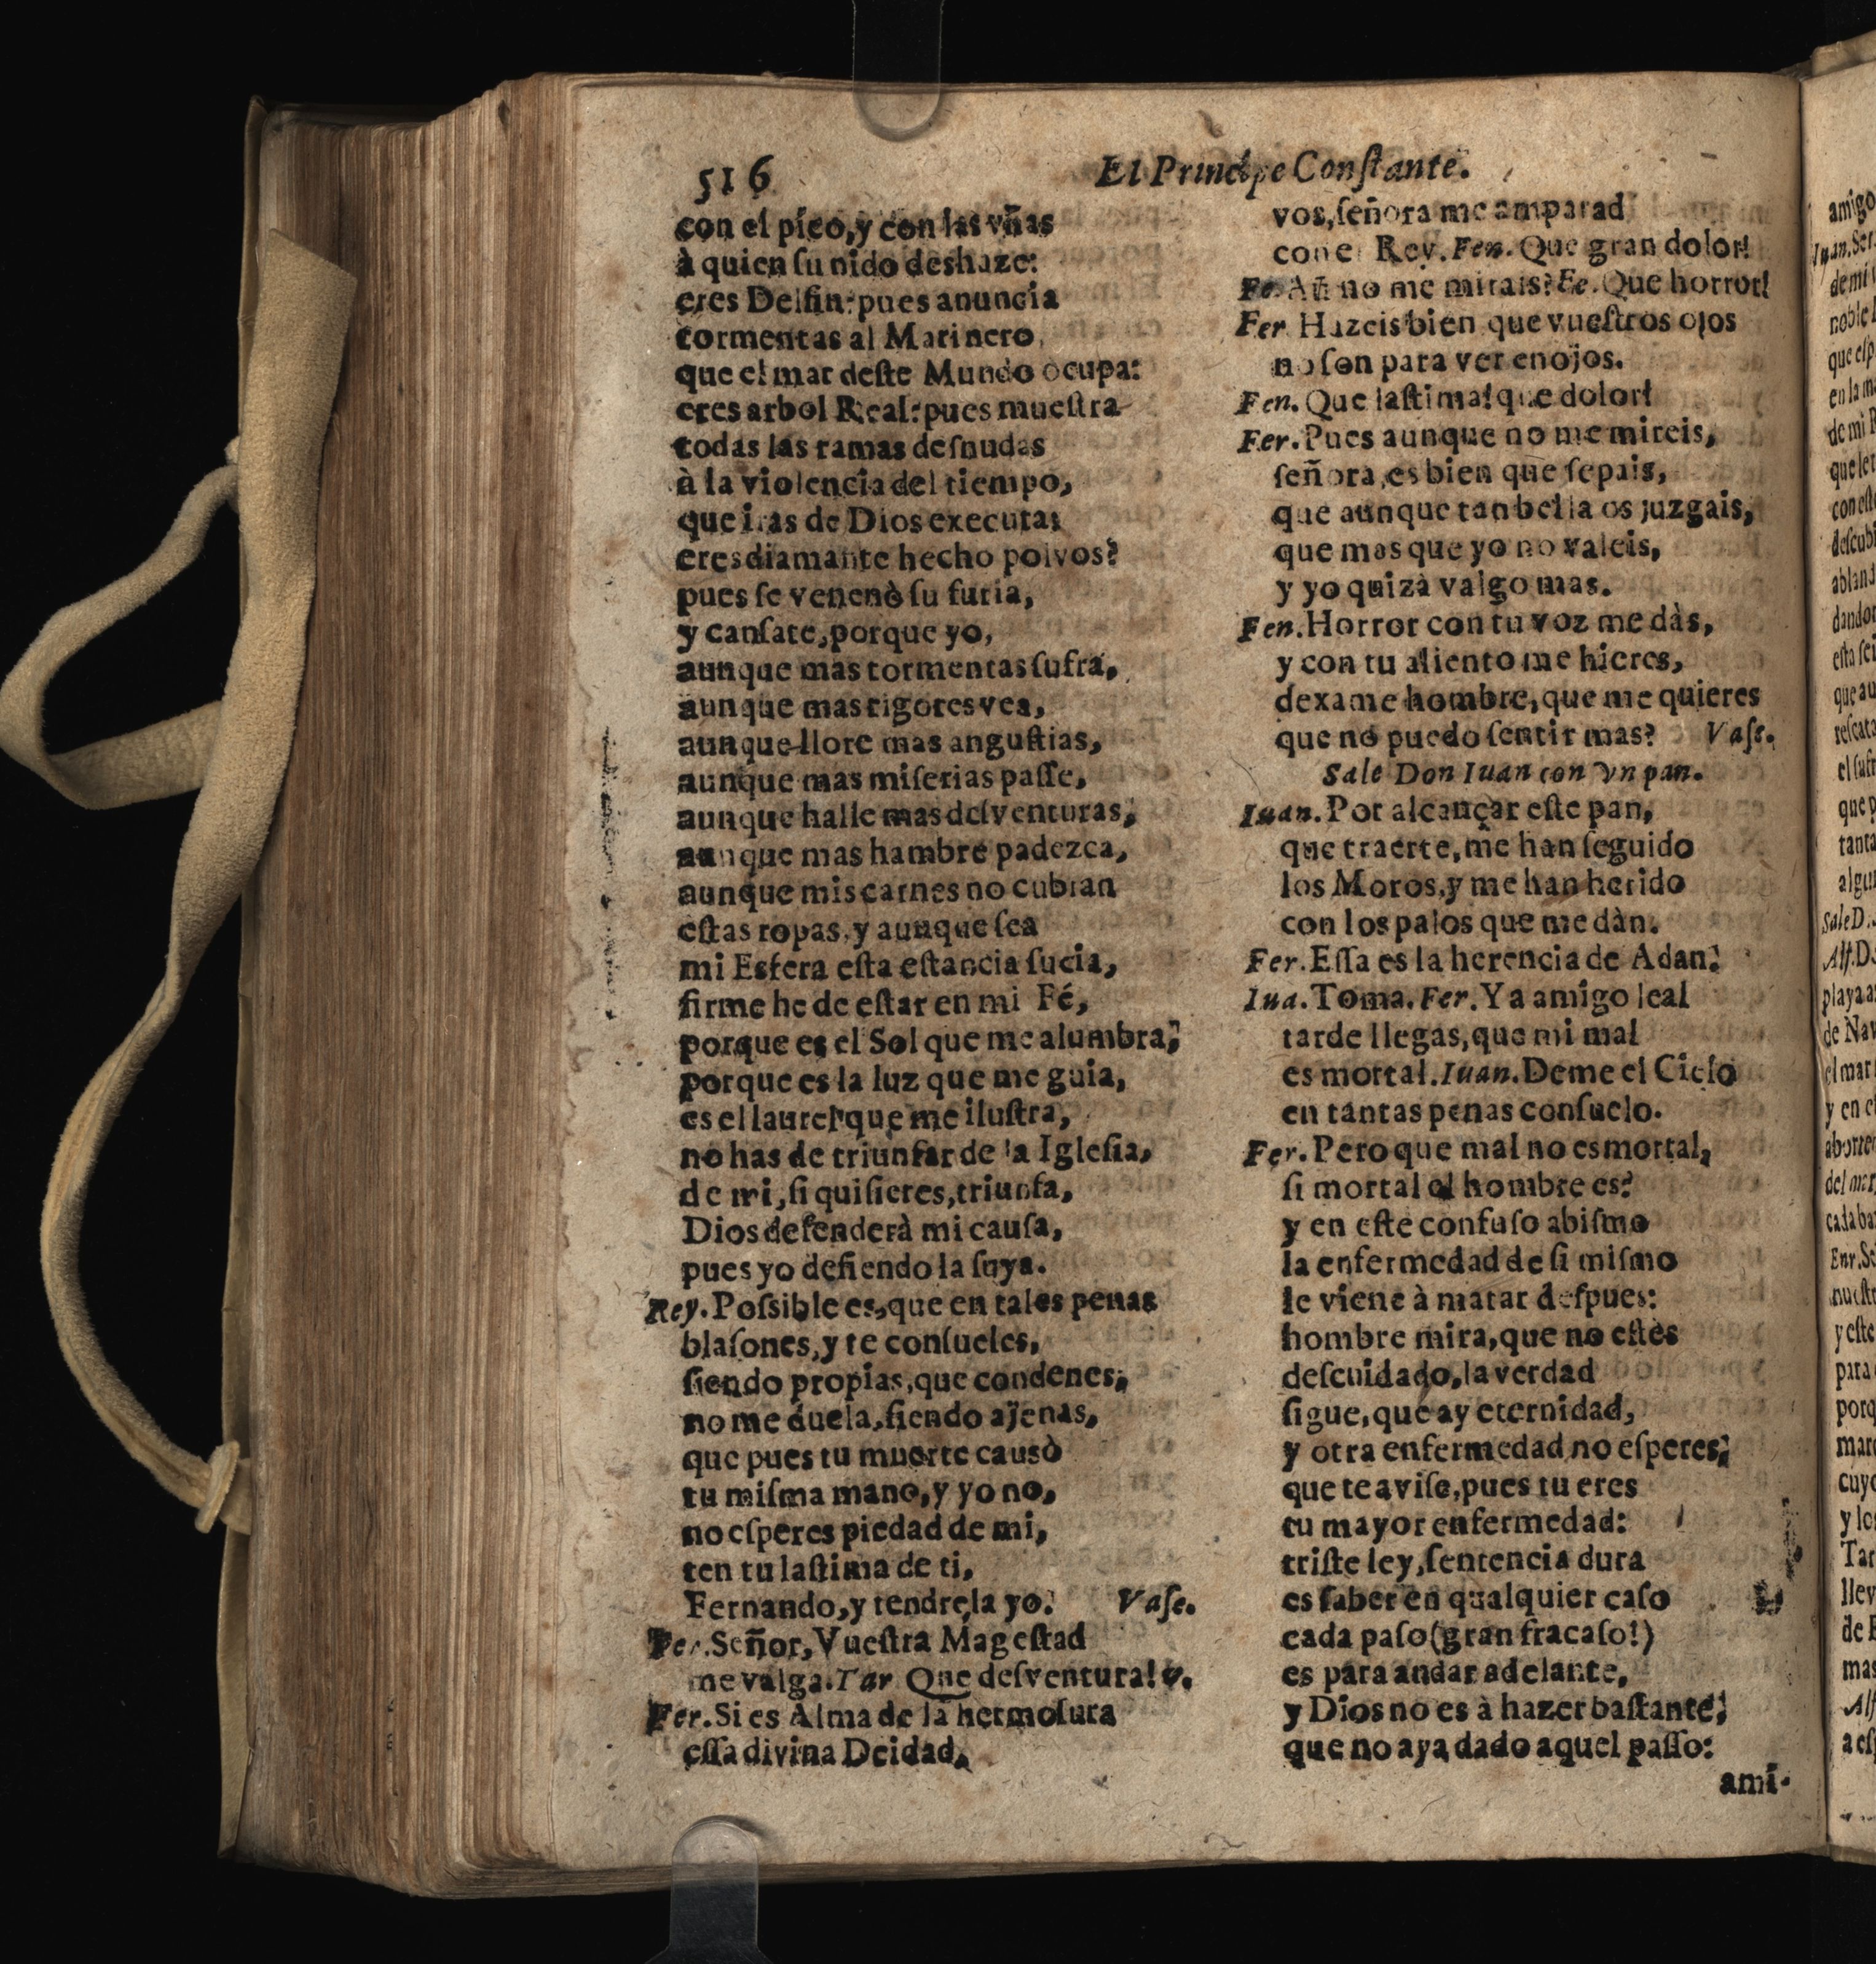 516
El Principe Constante.
con el pico, y con las vñas
à quien ſu nido deshaze:
eres Delfin: pues anuncia
tormentas al Marinero,
que el mar deſte Mundo ocupa:
eres arbol Real: pues mueſtra
todas las ramas deſnudas
à la violencia del tiempo,
que iras de Dios executa:
eres diamante hecho polvos?
pues ſe venenò ſu furia,
y canſate, porque yo,
aunque mas tormentas ſufra,
aunque mas rigores vea,
aunque llore mas anguſtias,
aunque mas miſerias paſſe,
aunque halle mas deſventuras,
aunque mas hambre padezca,
aunque mis carnes no cubran
eſtas ropas, y aunque ſea
mi Esfera eſta eſtancia ſucia,
firme he de eſtar en mi Fé,
porque es el Sol que me alumbra;
porque es la luz que me guia,
es el laurel que me iluſtra,
no has de triunfar de la Igleſia,
de mi, ſi quiſieres, triunfa,
Dios defenderà mi cauſa,
pues yo defiendo la ſuya.
Rey. Poſsible es, que en tales penas
blaſones, y te conſueles,
ſiendo propias, que condenes;
no me duela, ſiendo ajenas,
que pues tu muerte causò
tu miſma mano, y yo no,
no eſperes piedad de mi,
ten tu laſtima de ti,
Fernando, y tendrela yo. Vaſe.
Fer. Señor, Vueſtra Mageſtad
me valga. Tar Que deſventura! v.
Fer. Si es Alma de la hermoſura
eſſa divina Deidad,
vos, ſeñora me amparad
con e Rey. Fen. Que gran dolor!
Fe. Aũ no me mirais? Fe. Que horror!
Fer Hazeis bien que vueſtros ojos
no ſon para ver enojos.
Fen. Que laſtima! que dolor!
Fer. Pues aunque no me mireis,
ſeñora, es bien que ſepais,
que aunque tan bella os juzgais,
que mas que yo no valeis,
y yo quizà valgo mas.
Fen. Horror con tu voz me dàs,
y con tu aliento me hieres,
dexame hombre, que me quieres
que no puedo ſentir mas? Vaſe.
Sale Don Iuan con vn pan.
Iuan. Por alcançar eſte pan,
que traerte, me han ſeguido
los Moros, y me han herido
con los palos que me dàn.
Fer. Eſſa es la herencia de Adan.
Iua. Toma. Fer. Ya amigo leal
tarde llegas, que mi mal
es mortal. Iuan. Deme el Cielo
en tantas penas conſuelo.
Fer. Pero que mal no es mortal,
ſi mortal el hombre es?
y en eſte confuſo abiſmo
la enfermedad de ſi miſmo
le viene à matar deſpues:
hombre mira, que no eſtès
deſcuidado, la verdad
ſigue, que ay eternidad,
y otra enfermedad no eſperes;
que te aviſe, pues tu eres
tu mayor enfermedad:
triſte ley, ſentencia dura
es ſaber en qualquier caſo
cada paſo (gran fracaſo!)
es para andar adelante,
y Dios no es à hazer baſtante;
que no aya dado aquel paſſo:
ami-